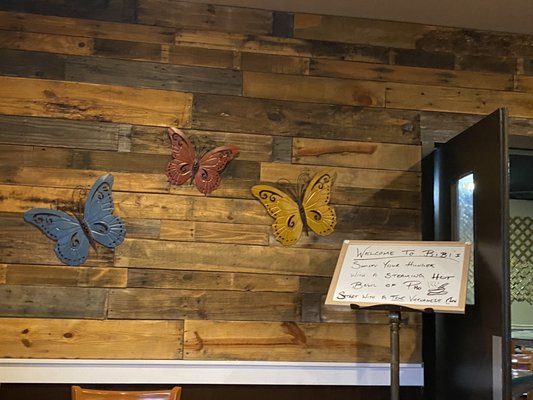 Welcome To BiBi's
Satisfy Your Hunger
With A Steaming Hot
Bowl of Pho
Start With A Fine Vietnamese